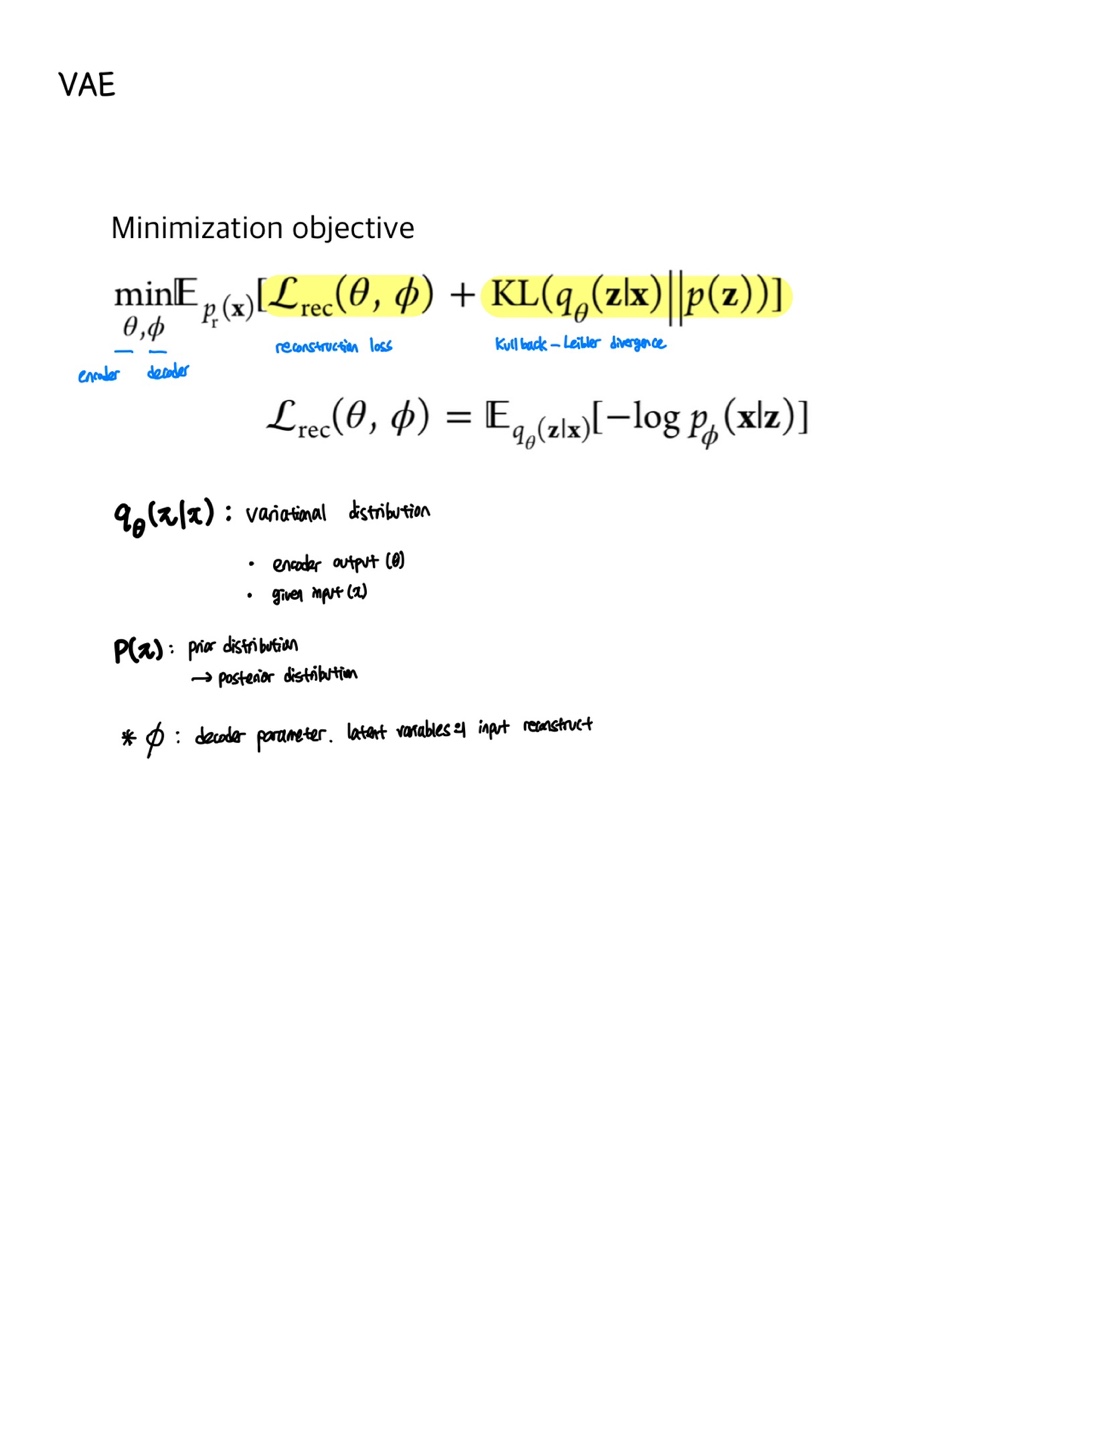 VAE
Minimization objective
min 𝔼 p_r(x) [ℒ_rec(θ, ϕ) + KL(q_θ(z|x)||p(z))]
θ,ϕ
reconstruction loss Kullback-Leibler divergence
encoder decoder
ℒ_rec(θ, ϕ) = 𝔼 q_θ(z|x) [−log p_ϕ(x|z)]
q_θ(z|x) : variational distribution
• encoder output (θ)
• given input (x)
P(z) : prior distribution
→ posterior distribution
* ϕ : decoder parameter. latent variables의 input reconstruct